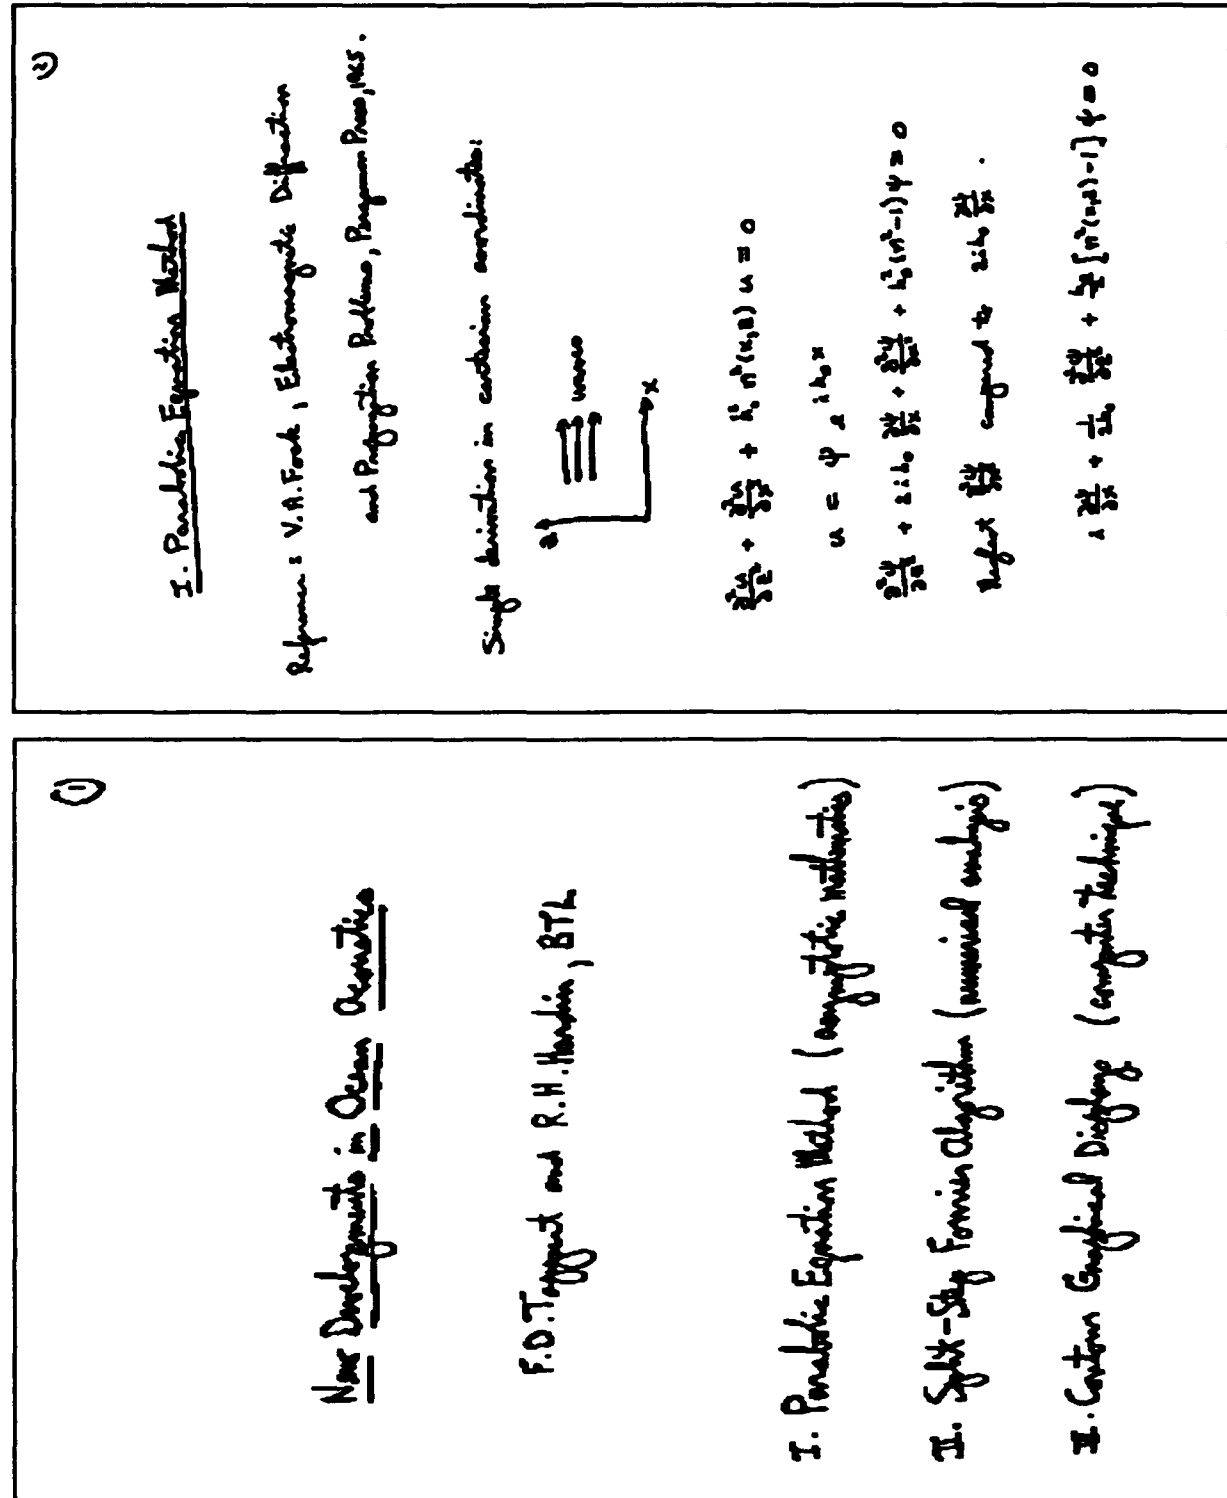 (1)
New Developments in Ocean Acoustics
F.D. Tappert and R.H. Hardin, BTL
I. Parabolic Equation Method (asymptotic mathematics)
II. Split-Step Fourier Algorithm (numerical analysis)
III. Contour Graphical Displays (computer technique)
(2)
I. Parabolic Equation Method
Reference: V.A. Fock, Electromagnetic Diffraction
and Propagation Problems, Pergamon Press, 1965.
Simple derivation in cartesian coordinates:
z
waves
x
∂²u/∂z² + ∂²u/∂x² + k₀² n²(x,z) u = 0
u = ψ e^{ik₀x}
∂²ψ/∂z² + 2ik₀ ∂ψ/∂x + ∂²ψ/∂x² + k₀²(n²-1)ψ = 0
Neglect ∂²ψ/∂x² compared to 2ik₀ ∂ψ/∂x.
i ∂ψ/∂x + 1/2k₀ ∂²ψ/∂z² + k₀/2 [n²(x,z)-1] ψ = 0